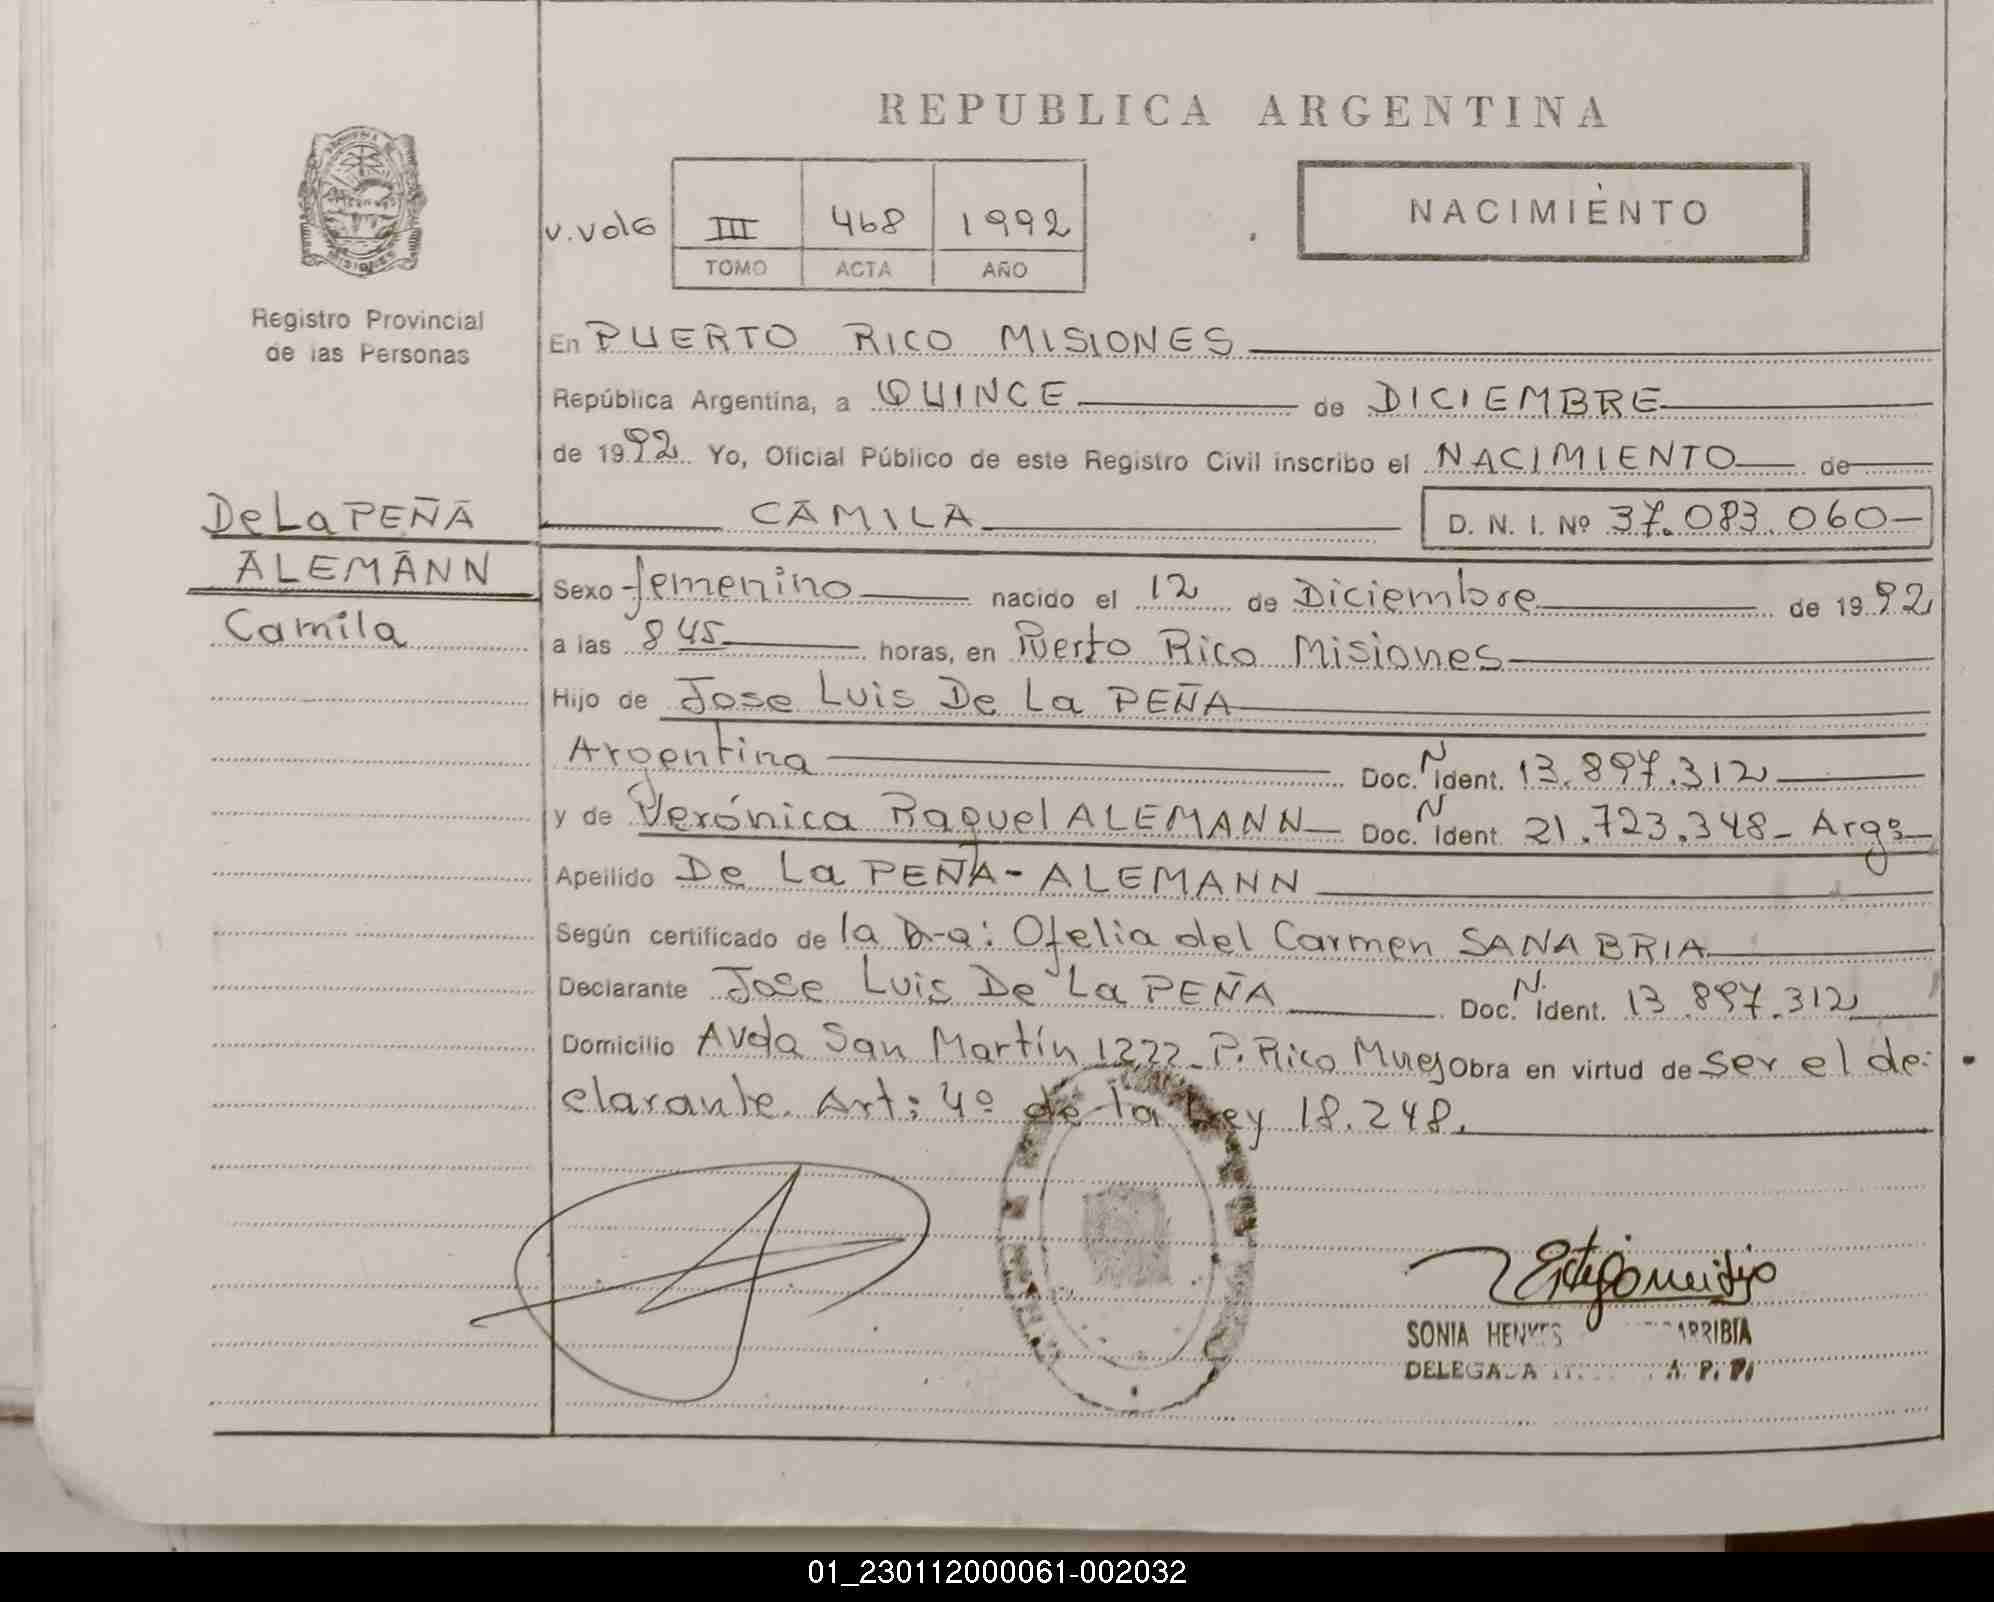 REPUBLICA ARGENTINA
NACIMIENTO
v. vdla III 468 1992
TOMO ACTA AÑO
MISIONES
Registro Provincial
de las Personas
En PUERTO RICO MISIONES
República Argentina, a QUINCE de DICIEMBRE
de 1992 Yo, Oficial Público de este Registro Civil inscribo el NACIMIENTO de
CAMILA D. N. I. Nº 37.083.060-
De La PEÑA
ALEMANN
Camila
Sexo femenino nacido el 12 de Diciembre de 1992
a las 8 45 horas, en Puerto Rico Misiones
Hijo de Jose Luis De La PEÑA
Argentina Doc. N Ident. 13.897.312
y de Verónica Raquel ALEMANN Doc. N Ident. 21.723.348- Arga
Apellido De La PEÑA - ALEMANN
Según certificado de la Dra: Ofelia del Carmen SANABRIA
Declarante Jose Luis De La PEÑA Doc. N. Ident. 13.897.312
Domicilio Avda San Martín 1222 P. Rico Mnes Obra en virtud de ser el de-
clarante. Art: 4º de la Ley 18.248.
SONIA HENKES ARRIBIA
DELEGADA
01_230112000061-002032